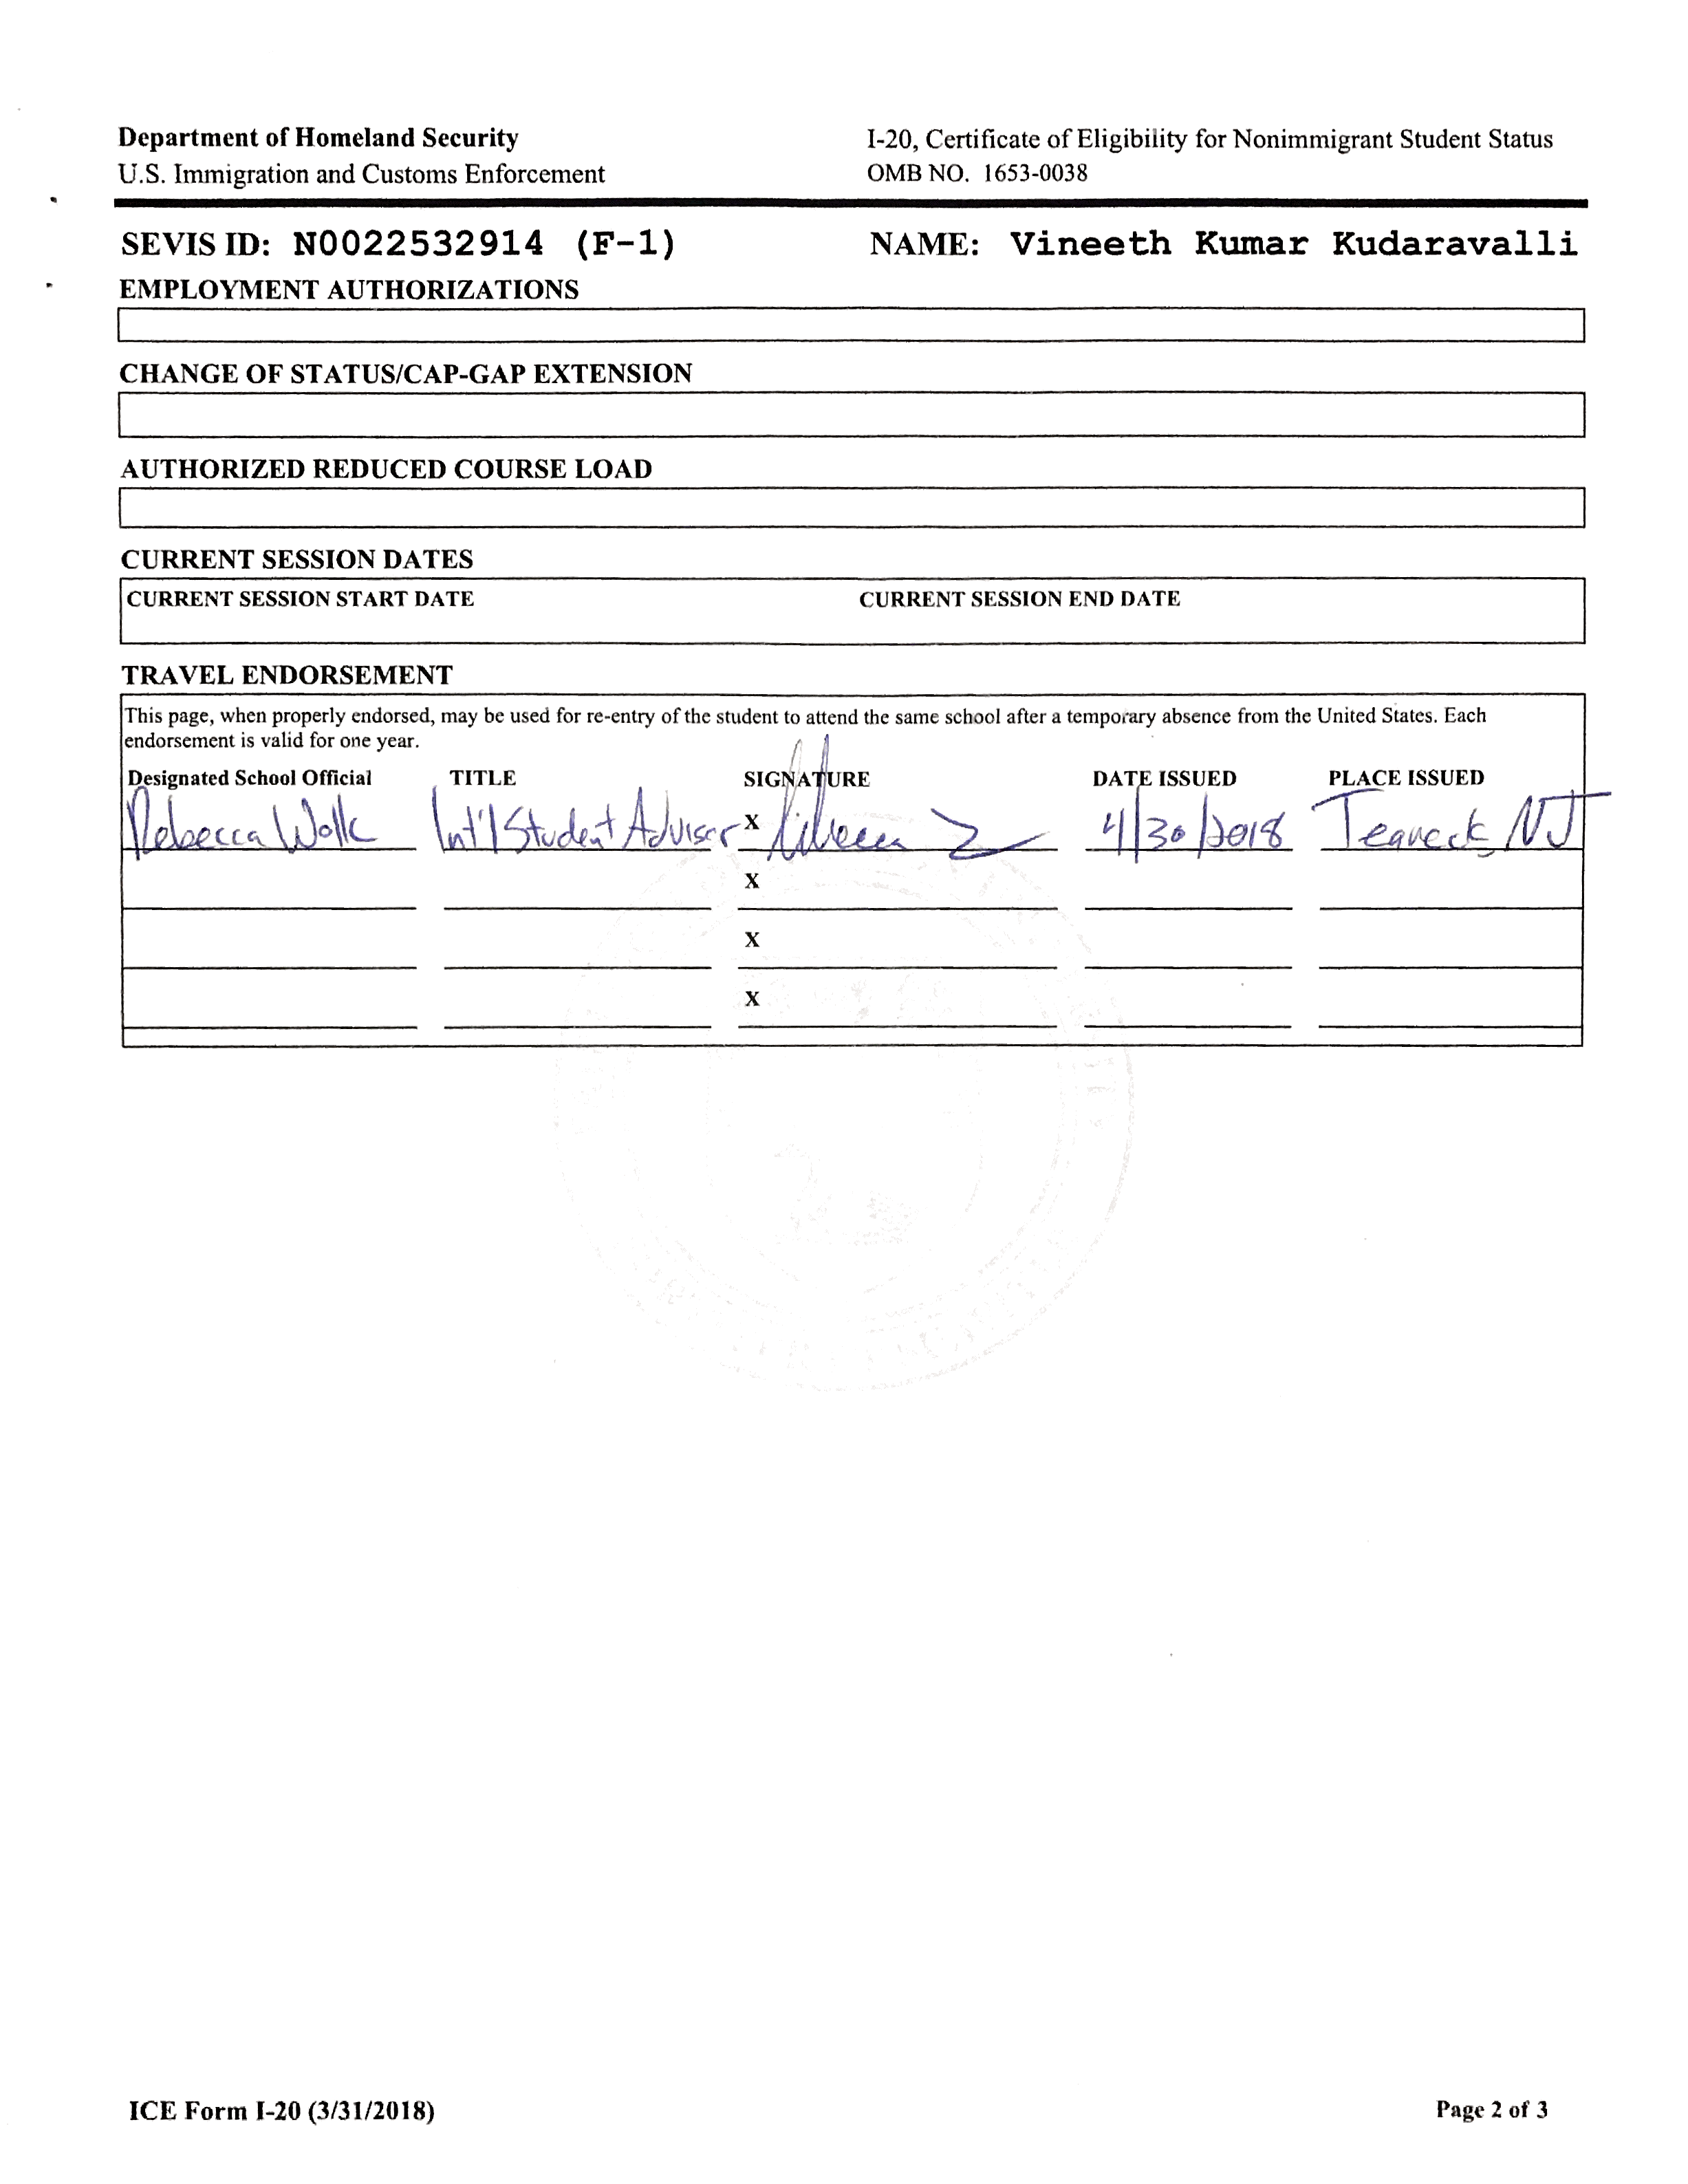 Department of Homeland Security
U.S. Immigration and Customs Enforcement
I-20, Certificate of Eligibility for Nonimmigrant Student Status
OMB NO. 1653-0038
SEVIS ID: N0022532914 (F-1)
NAME: Vineeth Kumar Kudaravalli
EMPLOYMENT AUTHORIZATIONS
CHANGE OF STATUS/CAP-GAP EXTENSION
AUTHORIZED REDUCED COURSE LOAD
CURRENT SESSION DATES
CURRENT SESSION START DATE CURRENT SESSION END DATE
TRAVEL ENDORSEMENT
This page, when properly endorsed, may be used for re-entry of the student to attend the same school after a temporary absence from the United States. Each
endorsement is valid for one year.
Designated School Official TITLE SIGNATURE DATE ISSUED PLACE ISSUED
Rebecca Wolk Int'l Student Adviser X 4/30/2018 Teaneck NJ
X
X
X
ICE Form I-20 (3/31/2018) Page 2 of 3